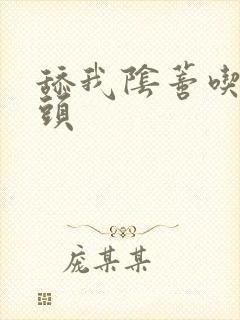 舔我陰蒂喫
頭
庞某某